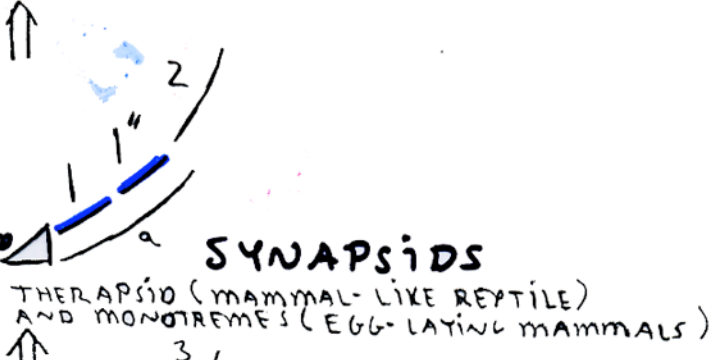 2
1"
1
a
SYNAPSiDS
THERAPSiD (MAMMAL-LIKE REPTiLE)
AND MONOTREMES (EGG-LAYING MAMMALS)
3